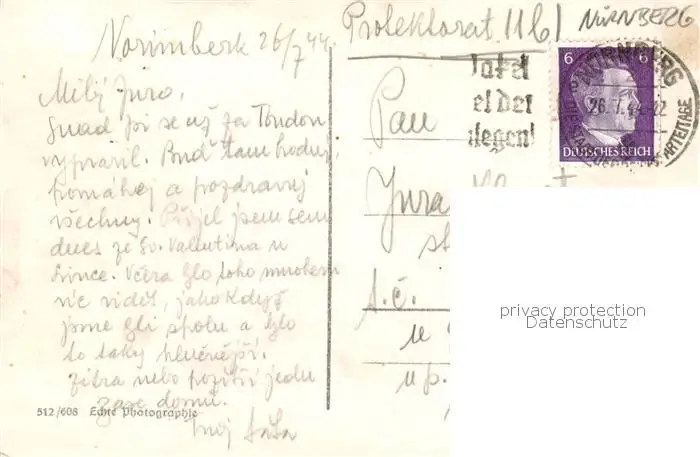 Norimberk 26/7 44
Milý Juro,
snad jsi se už za Tondou
vypravil. Buď tam hodný
pomáhej a pozdravuj
všechny. Přijel jsem sem
dnes ze Sv. Valentina u
Lince. Včera šlo toho mnohem
víc vidět, jako když
jsme šli spolu a bylo
to taky hlučnější.
Zítra nebo pozítří jedu
zase domů.
Tvůj táta
512/608 Echte Photographie
Protektorat 11b NÜRNBERG
Paket
el der
liegen!
6 6
NÜRNBERG
26.7.44-12
DEUTSCHES REICH
Pan
Jura
č.
u
u p.
privacy protection
Datenschutz